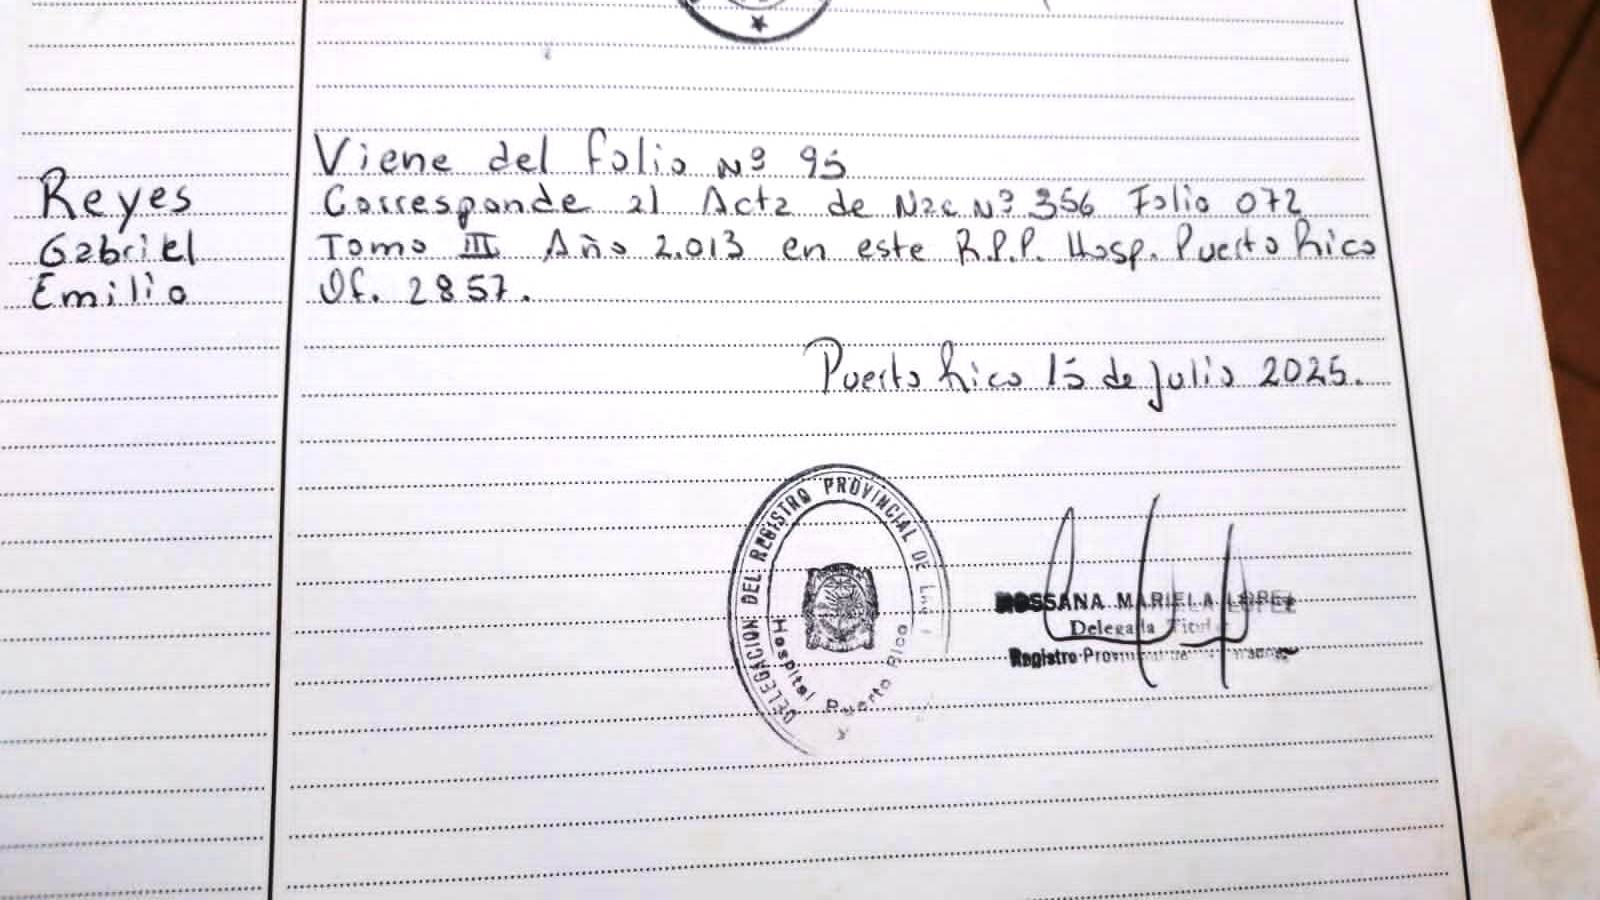 Viene del folio Nº 95
Reyes
Corresponde al Acta de Nac Nº 356 Folio 072
Gabriel
Tomo III Año 2.013 en este R.P.P. Hosp. Puerto Rico
Emilio
Of. 2857.
Puerto Rico 15 de julio 2025.
DELEGACION DEL REGISTRO PROVINCIAL DE
Hospital Puerto Rico
ROSSANA MARIELA LOPEZ
Delegada
Registro